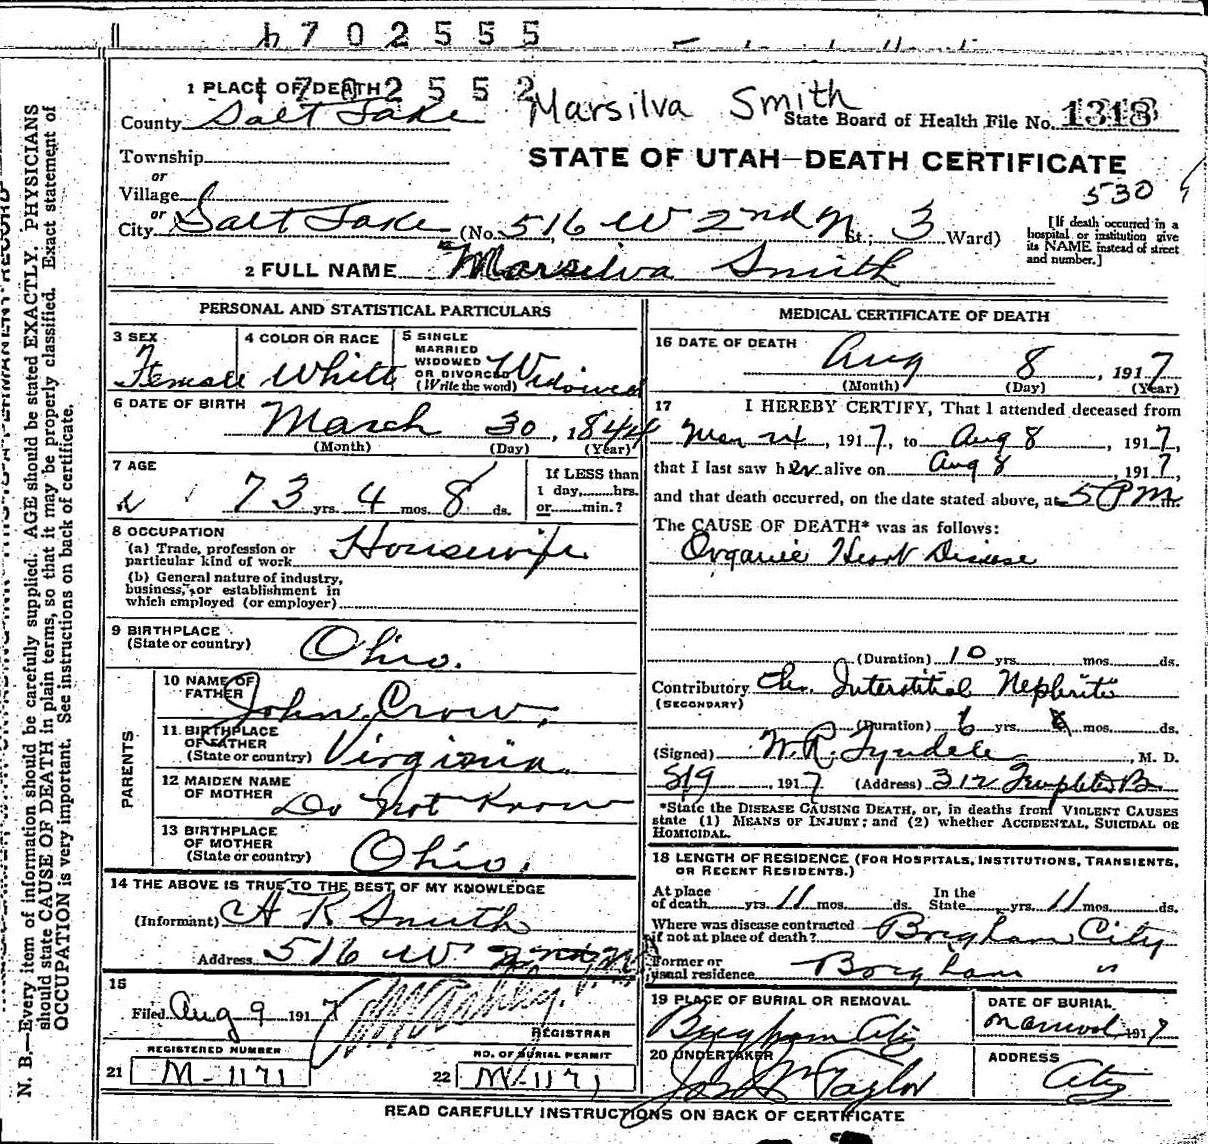 1702555
1702552
Marsilva Smith
1 PLACE OF DEATH
County Salt Lake
State Board of Health File No. 1318
Township
or
Village
or
City Salt Lake (No. 516 W 2nd N St.; 3 Ward)
STATE OF UTAH—DEATH CERTIFICATE
530
[If death occurred in a hospital or institution give its NAME instead of street and number.]
2 FULL NAME Marsilva Smith
PERSONAL AND STATISTICAL PARTICULARS
3 SEX Female
4 COLOR OR RACE White
5 SINGLE MARRIED WIDOWED OR DIVORCED (Write the word) Widowed
6 DATE OF BIRTH March 30, 1844
(Month) (Day) (Year)
7 AGE 73 yrs. 4 mos. 8 ds.
If LESS than 1 day,......hrs. or......min.?
8 OCCUPATION
(a) Trade, profession or particular kind of work Housewife
(b) General nature of industry, business, or establishment in which employed (or employer)
9 BIRTHPLACE (State or country) Ohio.
PARENTS
10 NAME OF FATHER John Crow,
11 BIRTHPLACE OF FATHER (State or country) Virginia.
12 MAIDEN NAME OF MOTHER Do not Know
13 BIRTHPLACE OF MOTHER (State or country) Ohio.
14 THE ABOVE IS TRUE TO THE BEST OF MY KNOWLEDGE
(Informant) A R Smith
Address 516 W 2nd N
15
Filed Aug 9 1917
REGISTRAR
REGISTERED NUMBER
21 M-1171
NO. OF BURIAL PERMIT
22 M-1171
MEDICAL CERTIFICATE OF DEATH
16 DATE OF DEATH Aug 8, 1917
(Month) (Day) (Year)
17 I HEREBY CERTIFY, That I attended deceased from
, 1917, to Aug 8, 1917,
that I last saw her alive on Aug 8, 1917
and that death occurred, on the date stated above, at 5 P M.
The CAUSE OF DEATH* was as follows:
Organic Heart Disease
(Duration) 10 yrs. mos. ds.
Contributory Ch. Interstitial Nephritis
(SECONDARY)
(Duration) 6 yrs. mos. ds.
(Signed) W. R. Tyndale, M. D.
, 1917 (Address) 312 Templeton B
*State the DISEASE CAUSING DEATH, or, in deaths from VIOLENT CAUSES
state (1) MEANS OF INJURY; and (2) whether ACCIDENTAL, SUICIDAL OR
HOMICIDAL.
18 LENGTH OF RESIDENCE (FOR HOSPITALS, INSTITUTIONS, TRANSIENTS, OR RECENT RESIDENTS.)
At place of death yrs. 11 mos. ds. In the State yrs. 11 mos. ds.
Where was disease contracted if not at place of death? Brigham City
Former or usual residence Brigham "
19 PLACE OF BURIAL OR REMOVAL Brigham City
DATE OF BURIAL 1917
20 UNDERTAKER Jos Wm Taylor
ADDRESS City
READ CAREFULLY INSTRUCTIONS ON BACK OF CERTIFICATE
N. B.—Every item of information should be carefully supplied. AGE should be stated EXACTLY. PHYSICIANS
should state CAUSE OF DEATH in plain terms, so that it may be properly classified. Exact statement of
OCCUPATION is very important. See instructions on back of certificate.